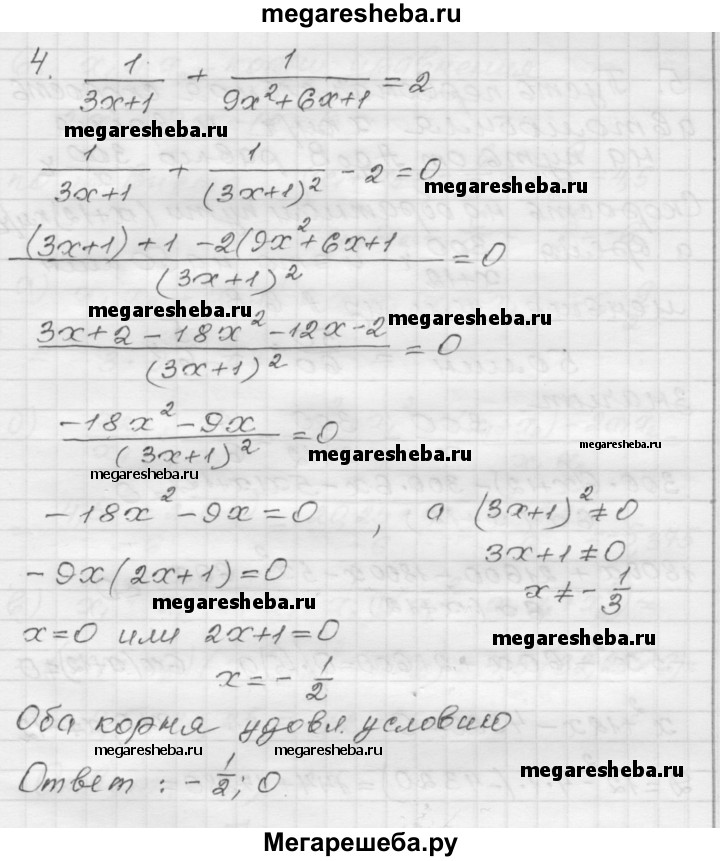 megaresheba.ru
4. 1/(3x+1) + 1/(9x²+6x+1) = 2
megaresheba.ru
1/(3x+1) + 1/(3x+1)² - 2 = 0 megaresheba.ru
((3x+1) + 1 - 2(9x²+6x+1)/(3x+1)² = 0
megaresheba.ru megaresheba.ru
(3x+2-18x²-12x-2)/(3x+1)² = 0
(-18x²-9x)/(3x+1)² = 0 megaresheba.ru megaresheba.ru
megaresheba.ru
-18x²-9x=0, а (3x+1)²≠0
-9x(2x+1)=0 3x+1≠0
megaresheba.ru x≠-1/3
x=0 или 2x+1=0 megaresheba.ru
x=-1/2
Оба корня удовл. условию
megaresheba.ru megaresheba.ru
Ответ: -1/2; 0 megaresheba.ru
Мегарешеба.ру